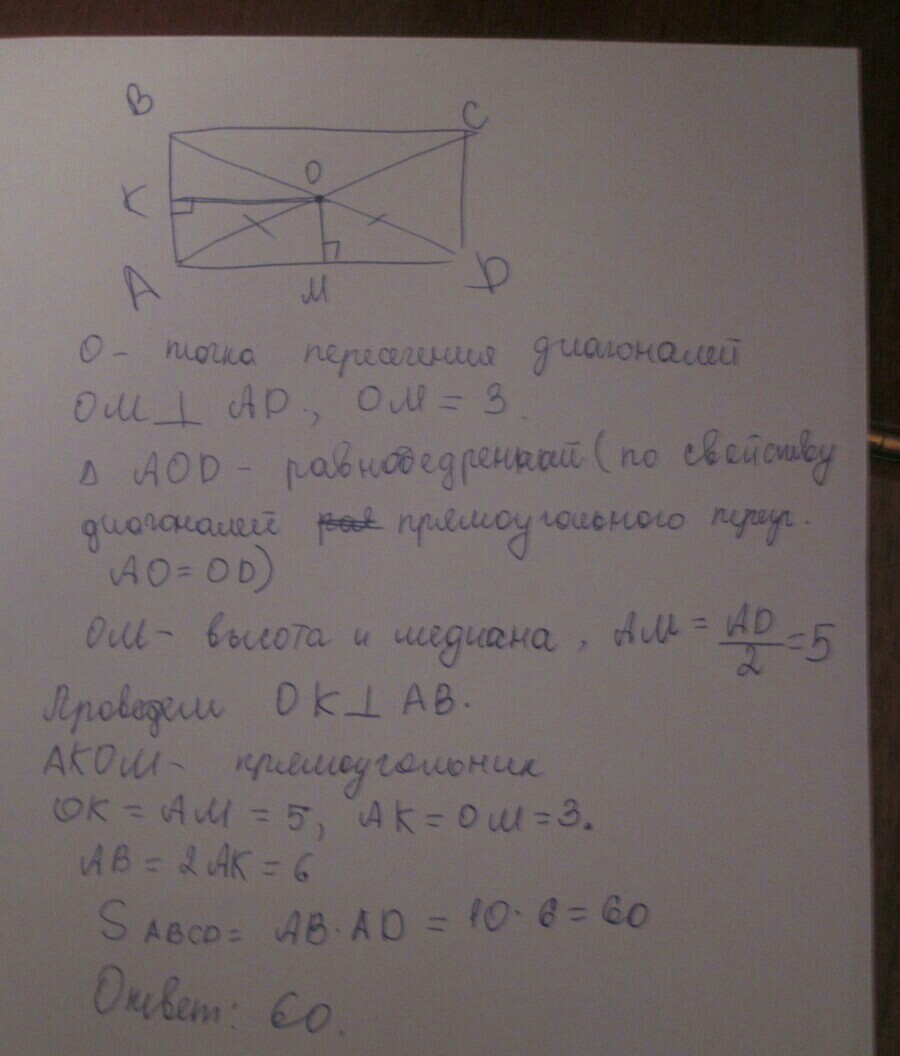 B
C
O
K
A
M
D
О - точка пересечения диагоналей
OM ⊥ AD, OM = 3.
Δ AOD - равнобедренный (по свойству
диагоналей прямоугольного
AO = OD)
OM - высота и медиана, AM = AD/2 = 5
Проведем OK ⊥ AB.
AKOM - прямоугольник
OK = AM = 5, AK = OM = 3.
AB = 2AK = 6
S ABCD = AB · AD = 10 · 6 = 60
Ответ: 60.